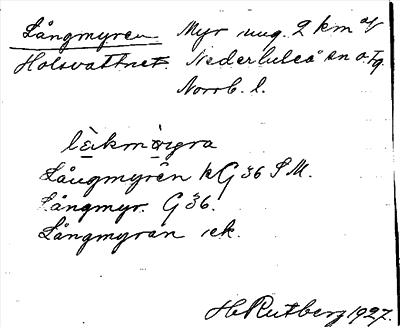 Långmyren Myr ung. 2 km af
Holsvattnet. Nederluleå sn
Norrb. l.
Långmyrên kG 36 S M.
Långmyr. G 36.
Långmyran ek.
H Rutberg 1927.